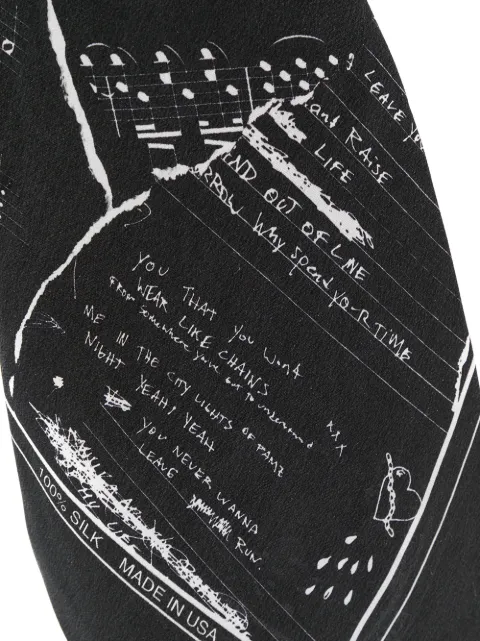 I LEAVE
and RAISE
LIFE
END OUT OF LINE
Why spend yo-R TIME
YOU THAT YOU WanT
WEAR LIKE CHAINS
From somewhere you've got to understand
ME IN THE CITY LIGHTS OF FAME
NIGHT YEAH! YEAH
YOU NEVER WANNA
LEAVE RUN.
XXX
MY LIFE
100% SILK MADE IN USA